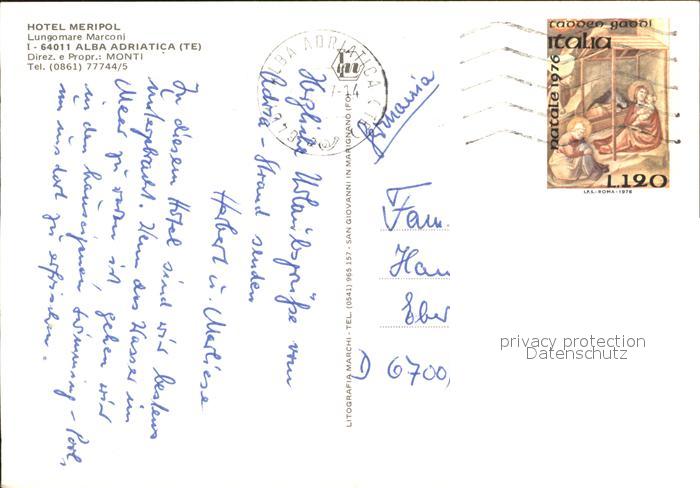 HOTEL MERIPOL
Lungomare Marconi
I - 64011 ALBA ADRIATICA (TE)
Direz. e Propr.: MONTI
Tel. (0861) 77744/5
Herzliche Urlaubsgrüße vom
Adria-Strand senden
Herbert u. Marliese
In diesem Hotel sind wir bestens
untergebracht. Wenn das Wasser im
Meer zu warm ist gehen wir
in den hauseigenen swimming-Pool,
um uns dort zu erfrischen.
LITOGRAFIA MARCHI - TEL. (0541) 965 157 - SAN GIOVANNI IN MARIGNANO (FO)
ALBA ADRIATICA (TE)
Germania
Fam.
Han
Eber
D 6700,
taddeo gaddi
italia
natale 1976
L.120
I.P.S.-ROMA-1976
privacy protection
Datenschutz